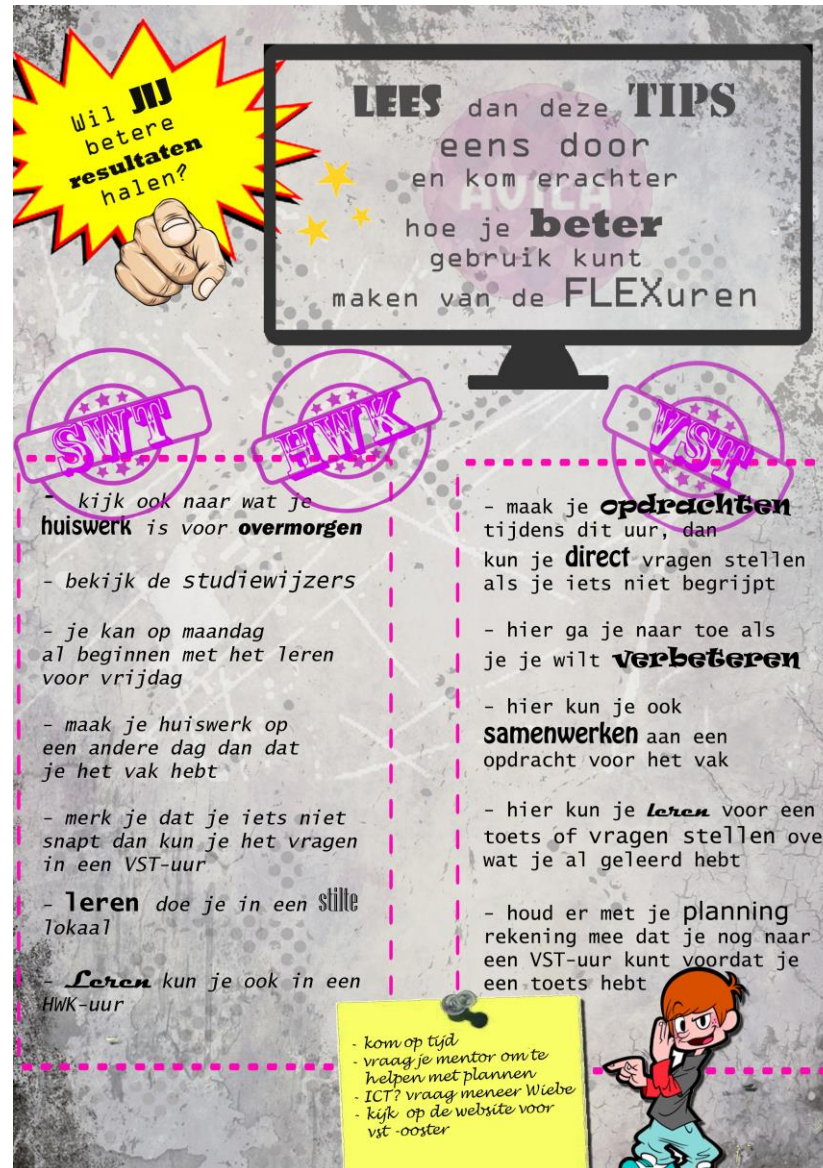 Wil JIJ
betere
resultaten
halen?
LEES dan deze TIPS
eens door
en kom erachter
hoe je beter
gebruik kunt
maken van de FLEXuren
AVILA
SWT
HWK
- kijk ook naar wat je
huiswerk is voor overmorgen
- bekijk de studiewijzers
- je kan op maandag
al beginnen met het leren
voor vrijdag
- maak je huiswerk op
een andere dag dan dat
je het vak hebt
- merk je dat je iets niet
snapt dan kun je het vragen
in een VST-uur
- leren doe je in een stilte
lokaal
- Leren kun je ook in een
HWK-uur
VST
- maak je opdrachten
tijdens dit uur, dan
kun je direct vragen stellen
als je iets niet begrijpt
- hier ga je naar toe als
je je wilt verbeteren
- hier kun je ook
samenwerken aan een
opdracht voor het vak
- hier kun je leren voor een
toets of vragen stellen ove
wat je al geleerd hebt
- houd er met je planning
rekening mee dat je nog naar
een VST-uur kunt voordat je
een toets hebt
- kom op tijd
- vraag je mentor om te
helpen met plannen
- ICT? vraag meneer Wiebe
- kijk op de website voor
vst -ooster